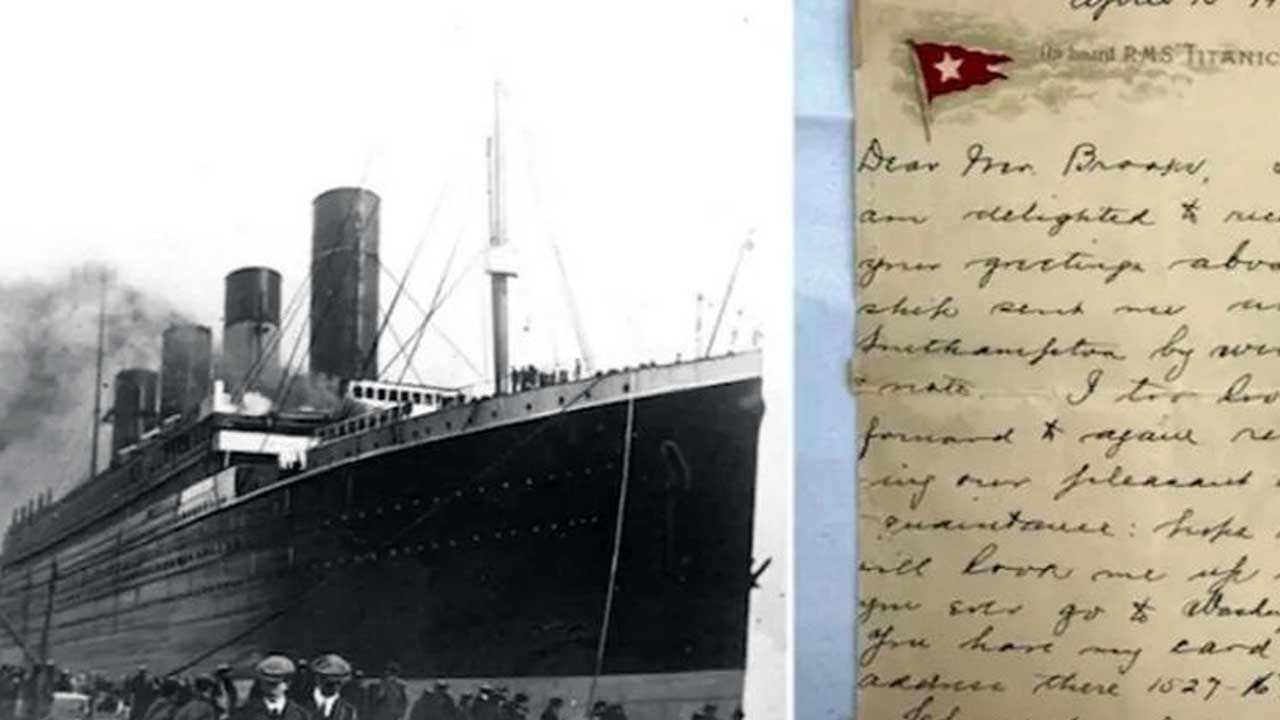 April 10 19
On board R.M.S "TITANIC
Dear Mr. Brooke,
am delighted to rec
your greetings aboa
ship sent me
Southampton by
note. I too loo
forward to again re
ing our pleasant
quaintance: hope
will look me up
you ever go to Washi
You have my card
address there 1527-16